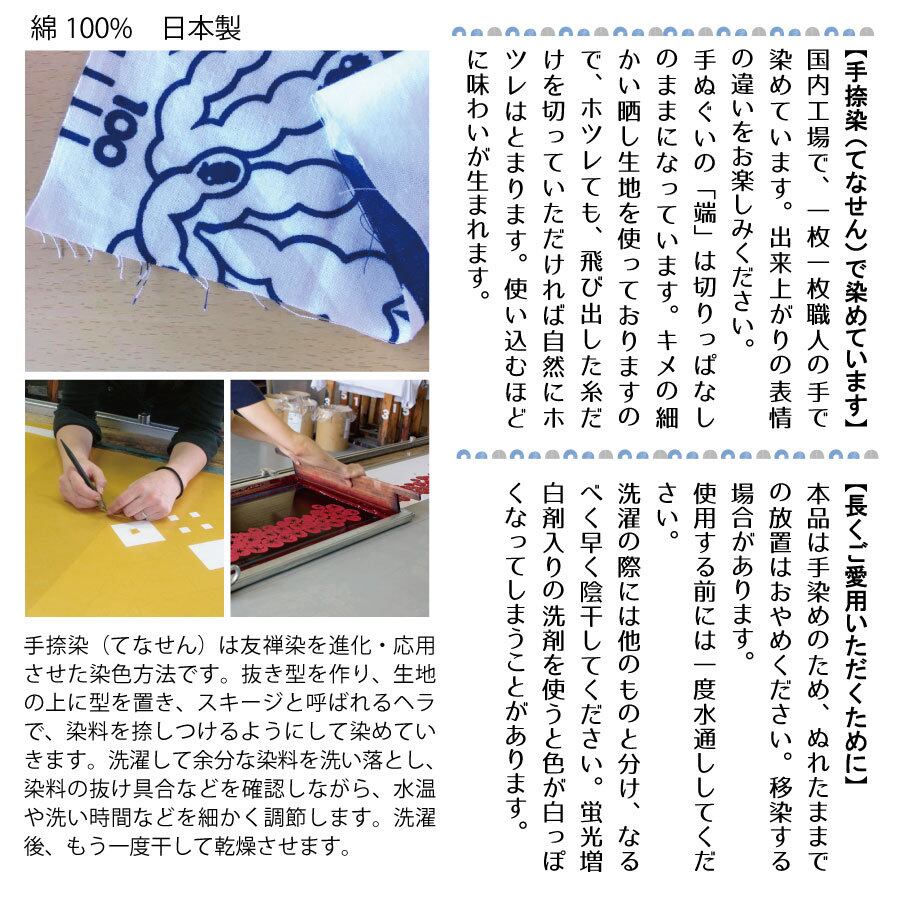 綿 100%　日本製
100
【手捺染（てなせん）で染めています】
国内工場で、一枚一枚職人の手で
染めています。出来上がりの表情
の違いをお楽しみください。
手ぬぐいの「端」は切りっぱなし
のままになっています。キメの細
かい晒し生地を使っておりますの
で、ホツレても、飛び出した糸だ
けを切っていただければ自然にホ
ツレはとまります。使い込むほど
に味わいが生まれます。
【長くご愛用いただくために】
本品は手染めのため、ぬれたままで
の放置はおやめください。移染する
場合があります。
使用する前には一度水通ししてくだ
さい。
洗濯の際には他のものと分け、なる
べく早く陰干してください。蛍光増
白剤入りの洗剤を使うと色が白っぽ
くなってしまうことがあります。
手捺染（てなせん）は友禅染を進化・応用
させた染色方法です。抜き型を作り、生地
の上に型を置き、スキージと呼ばれるヘラ
で、染料を捺しつけるようにして染めてい
きます。洗濯して余分な染料を洗い落とし、
染料の抜け具合などを確認しながら、水温
や洗い時間などを細かく調節します。洗濯
後、もう一度干して乾燥させます。